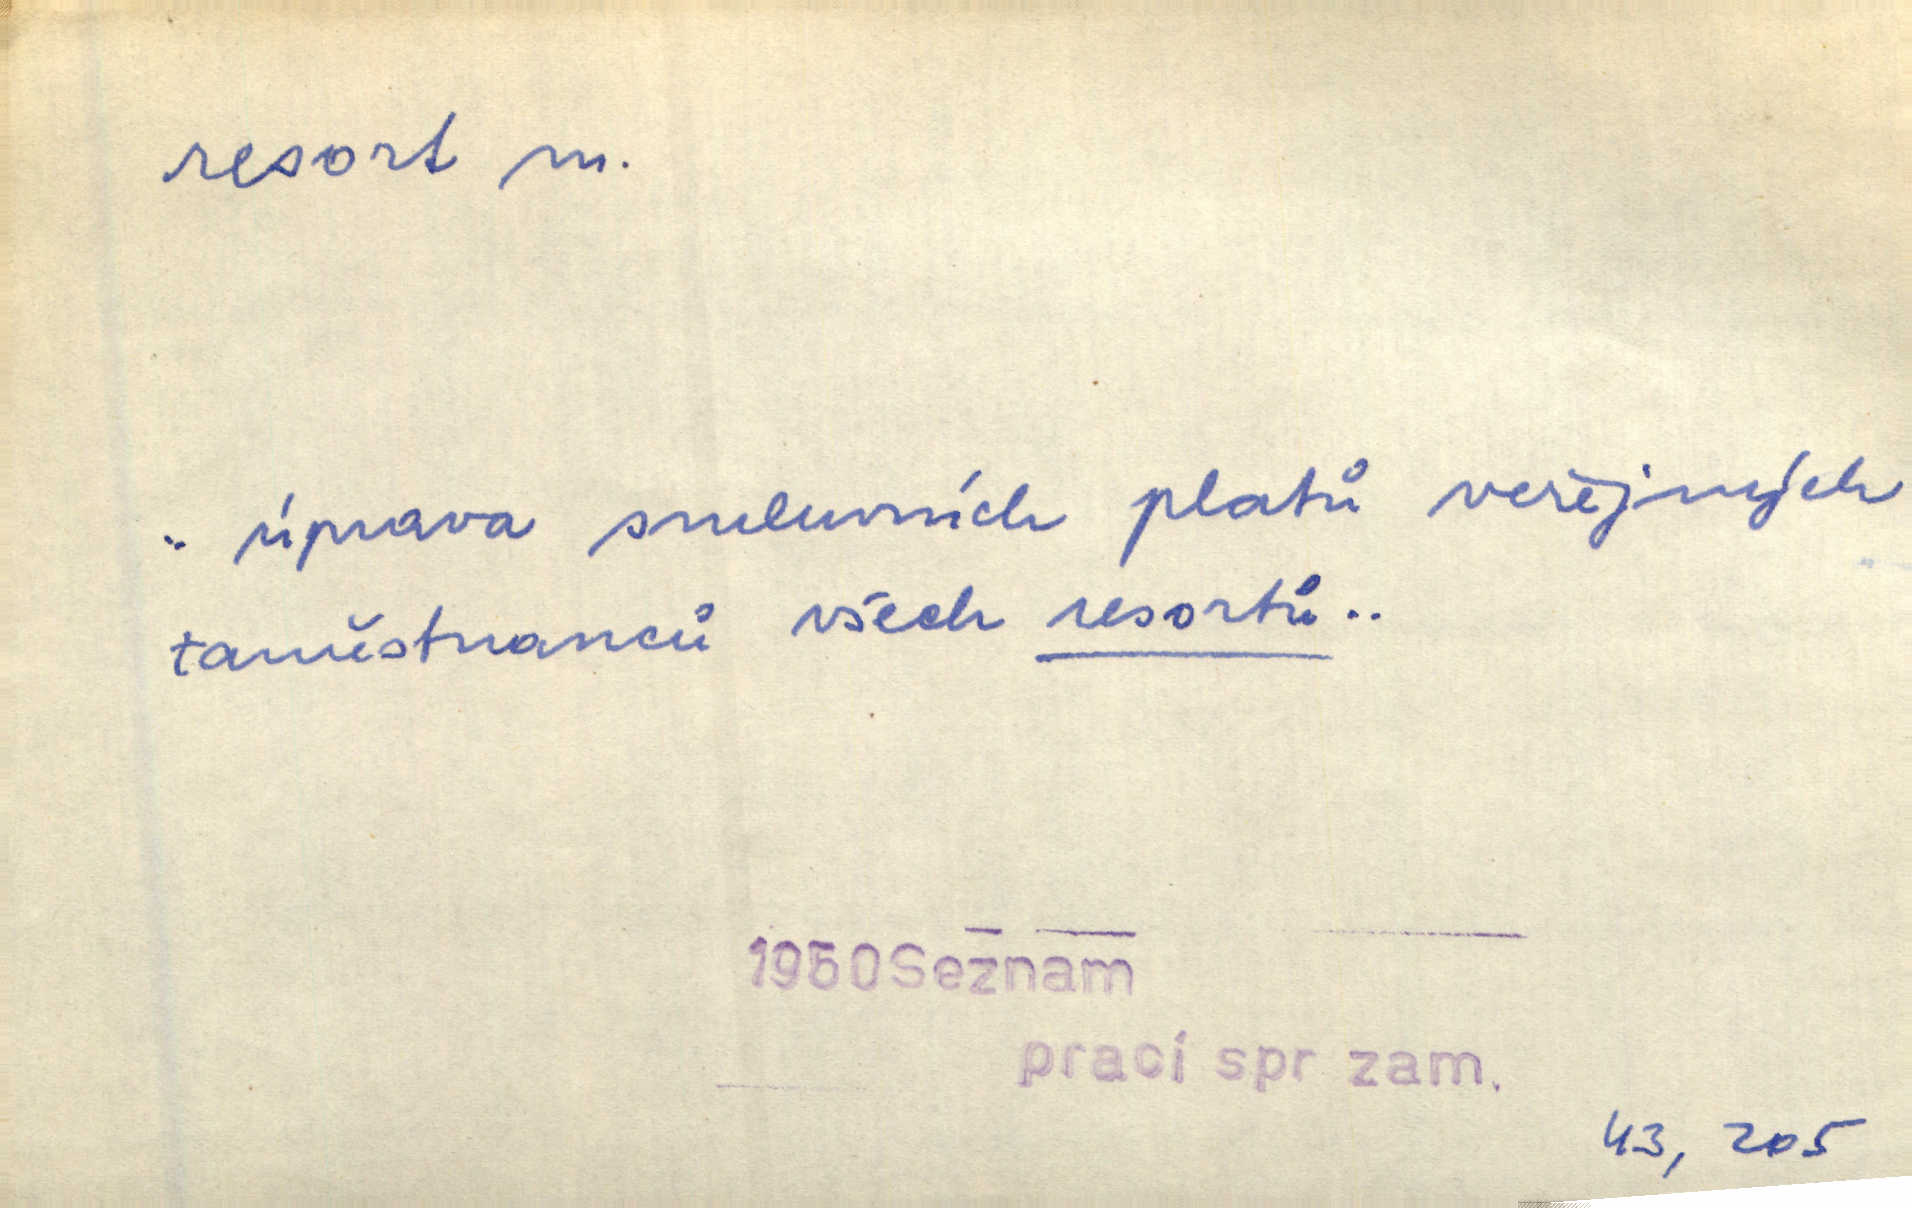 resort m.
.. úprava smluvních platů veřejných
zaměstnanců všech resortů..
1950 Seznam
prací spr zam.
43, 205